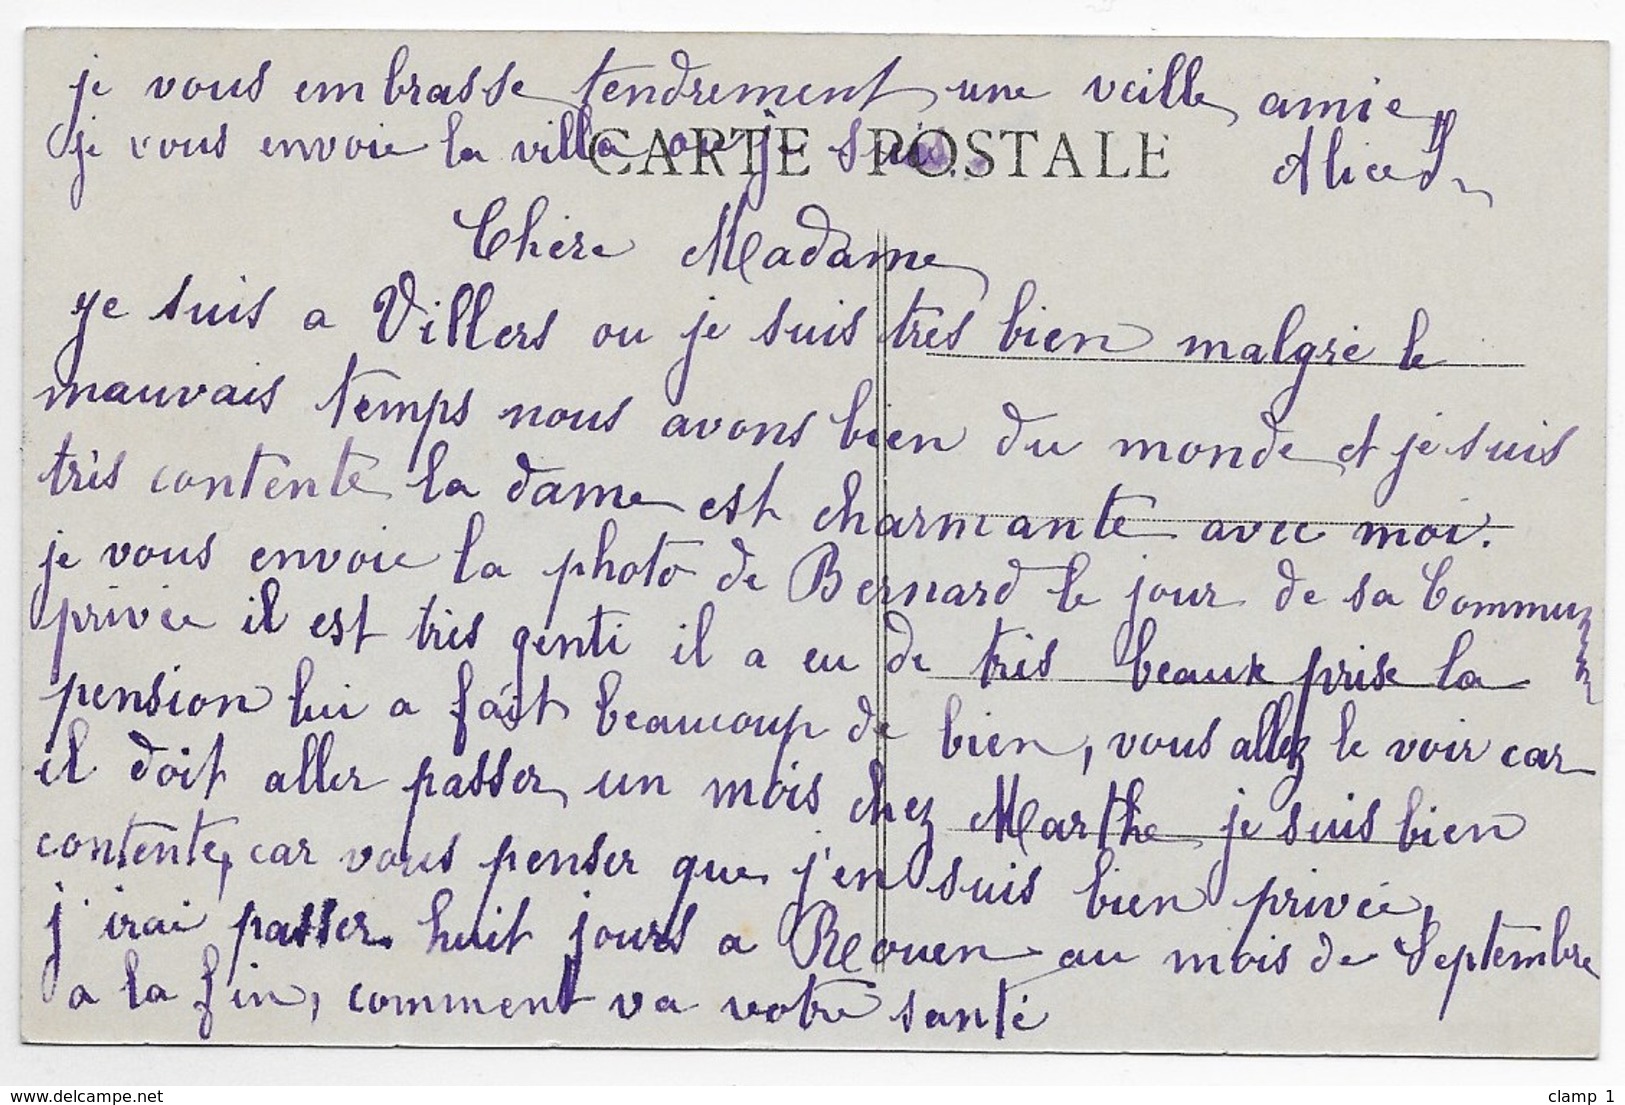 je vous embrasse tendrement une veille amie
je vous envoie la villa ou je suis
CARTE POSTALE
Alice
Chère Madame
je suis a Villers ou je suis très bien malgré le
mauvais temps nous avons bien du monde et je suis
très contente la dame est charmante avec moi.
je vous envoie la photo de Bernard le jour de sa Commun
privée il est très genti il a eu de très beaux prise la
pension lui a fait beaucoup de bien, vous allez le voir car
il doit aller passer un mois chez Marthe je suis bien
contente, car vous penser que j'en suis bien privée,
j'irai passer huit jours a Rouen au mois de Septembre
a la fin, comment va votre santé
www.delcampe.net
clamp 1